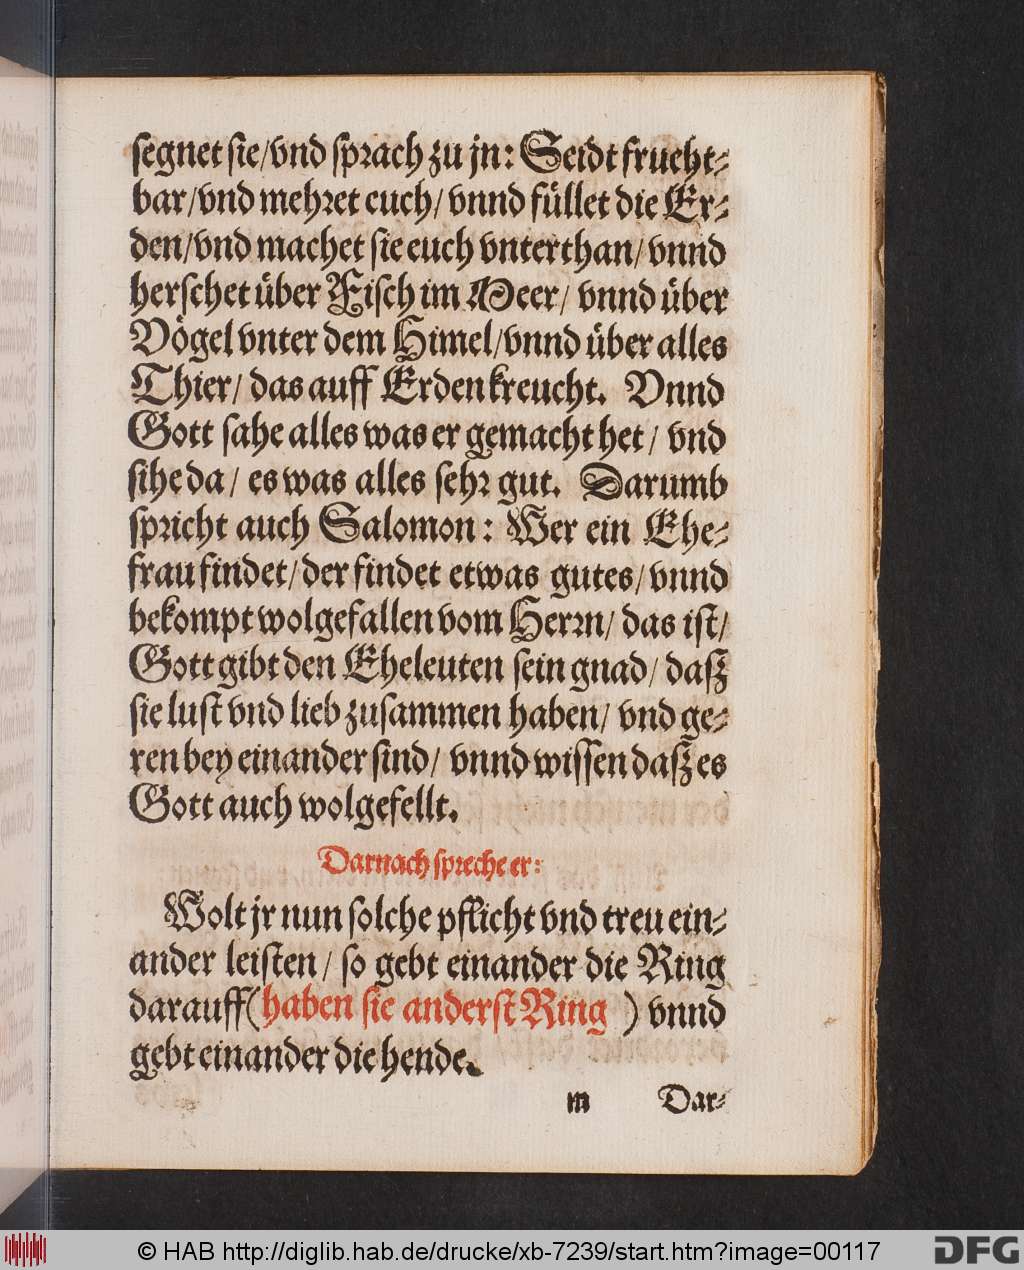 segnet sie/vnd sprach zu jn: Seidt frucht-
bar/vnd mehret euch/ vnnd füllet die Er-
den/vnd machet sie euch vnterthan/ vnnd
herschet über Fisch im Meer/ vnnd über
Vögel vnter dem Himel/vnnd über alles
Thier/ das auff Erden kreucht. Vnnd
Gott sahe alles was er gemacht het/ vnd
sihe da/ es was alles sehr gut. Darumb
spricht auch Salomon: Wer ein Ehe-
frau findet/der findet etwas gutes/ vnnd
bekompt wolgefallen vom Herrn/ das ist/
Gott gibt den Eheleuten sein gnad/ dasz
sie lust vnd lieb zusammen haben/ vnd ge-
ren bey einander sind/ vnnd wissen dasz es
Gott auch wolgefellt.
Darnach spreche er:
Wolt jr nun solche pflicht vnd treu ein-
ander leisten/ so gebt einander die Ring
darauff (haben sie anderst Ring ) vnnd
gebt einander die hende.
m Dar-
© HAB http://diglib.hab.de/drucke/xb-7239/start.htm?image=00117
DFG